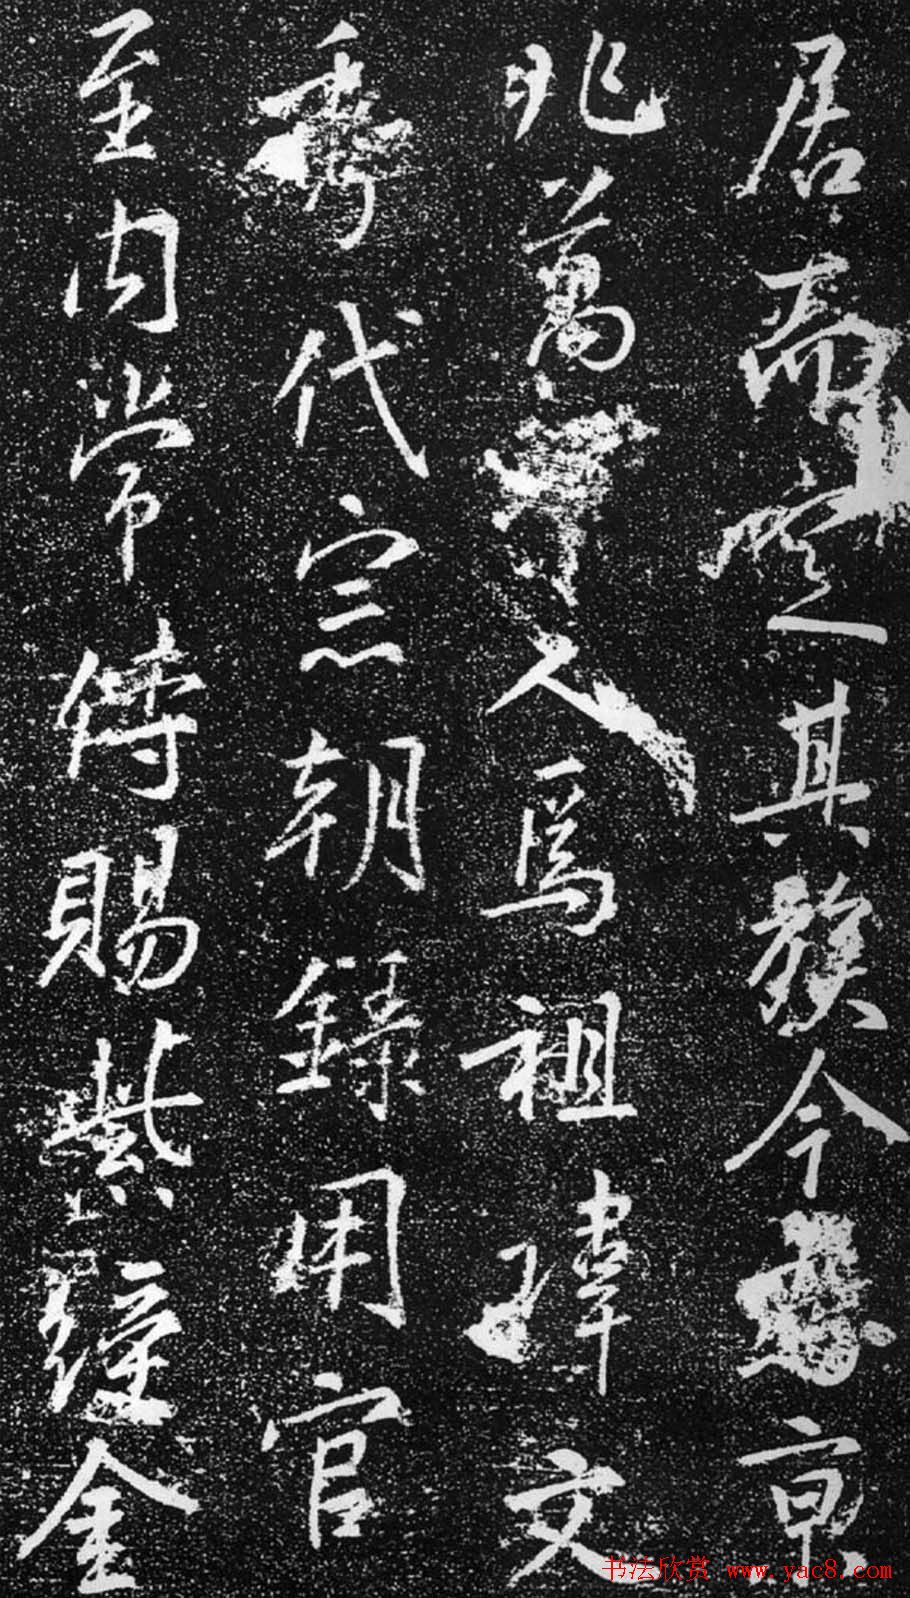 居而定其族今為京
兆萬年人焉祖瑋文
秀代宗朝錄用官
至内常侍賜紫緋金
书法欣赏 www.yac8.com